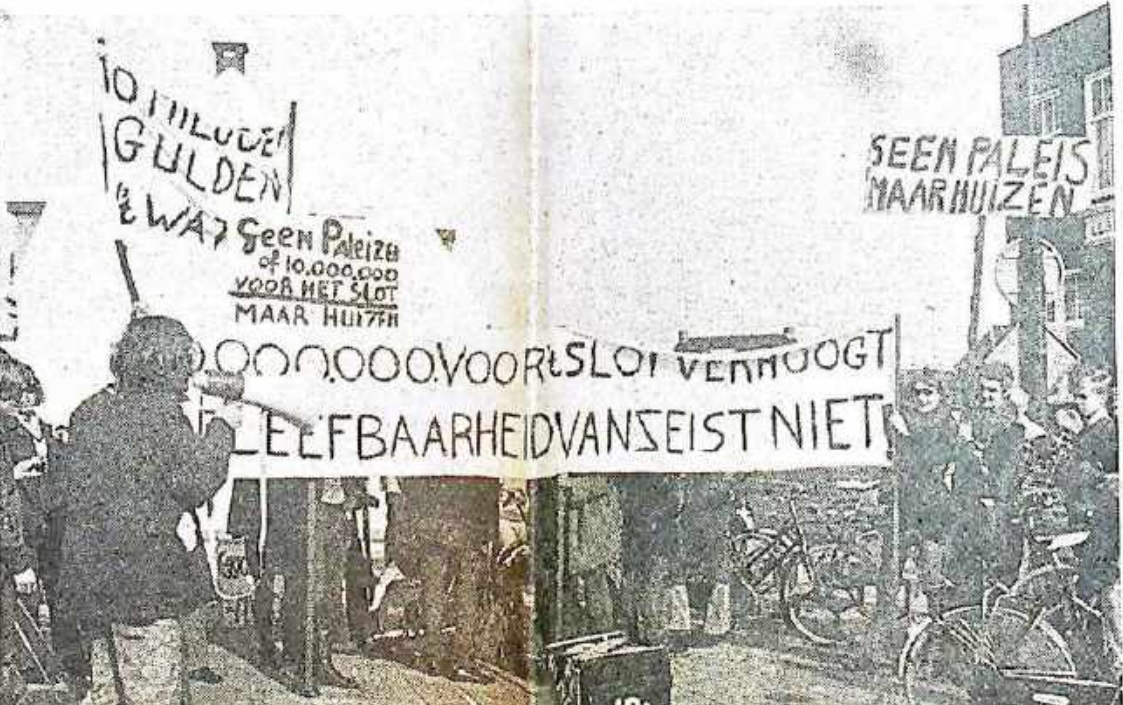 10 MILJOEN
GULDEN
WAT
Geen Paleizen
of 10.000.000
VOOR HET SLOT
MAAR HUIZEN
GEEN PALEIS
MAAR HUIZEN
0.000.000. VOOR 'T SLOT VERHOOGT
LEEFBAARHEID VAN ZEIST NIET